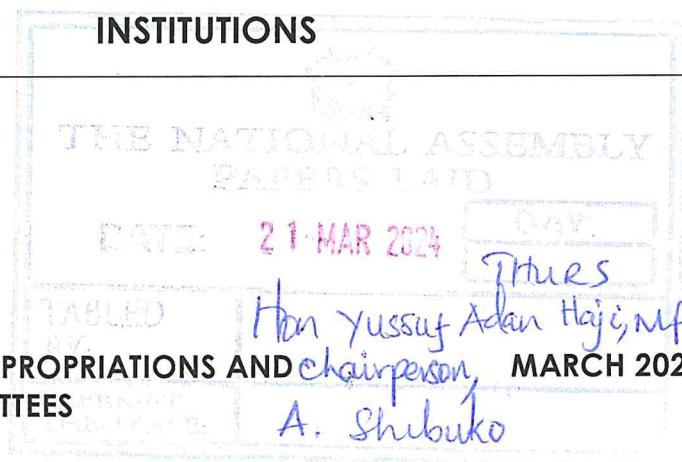 INSTITUTIONS
THE NATIONAL ASSEMBLY
PAPERS LAID
DATE: 21 MAR 2024 DAY:
THURS
TABLED
BY:
Hon Yussuf Adan Haji, MP
PROPRIATIONS AND chairperson, MARCH 202
TTEES
A. Shibuko